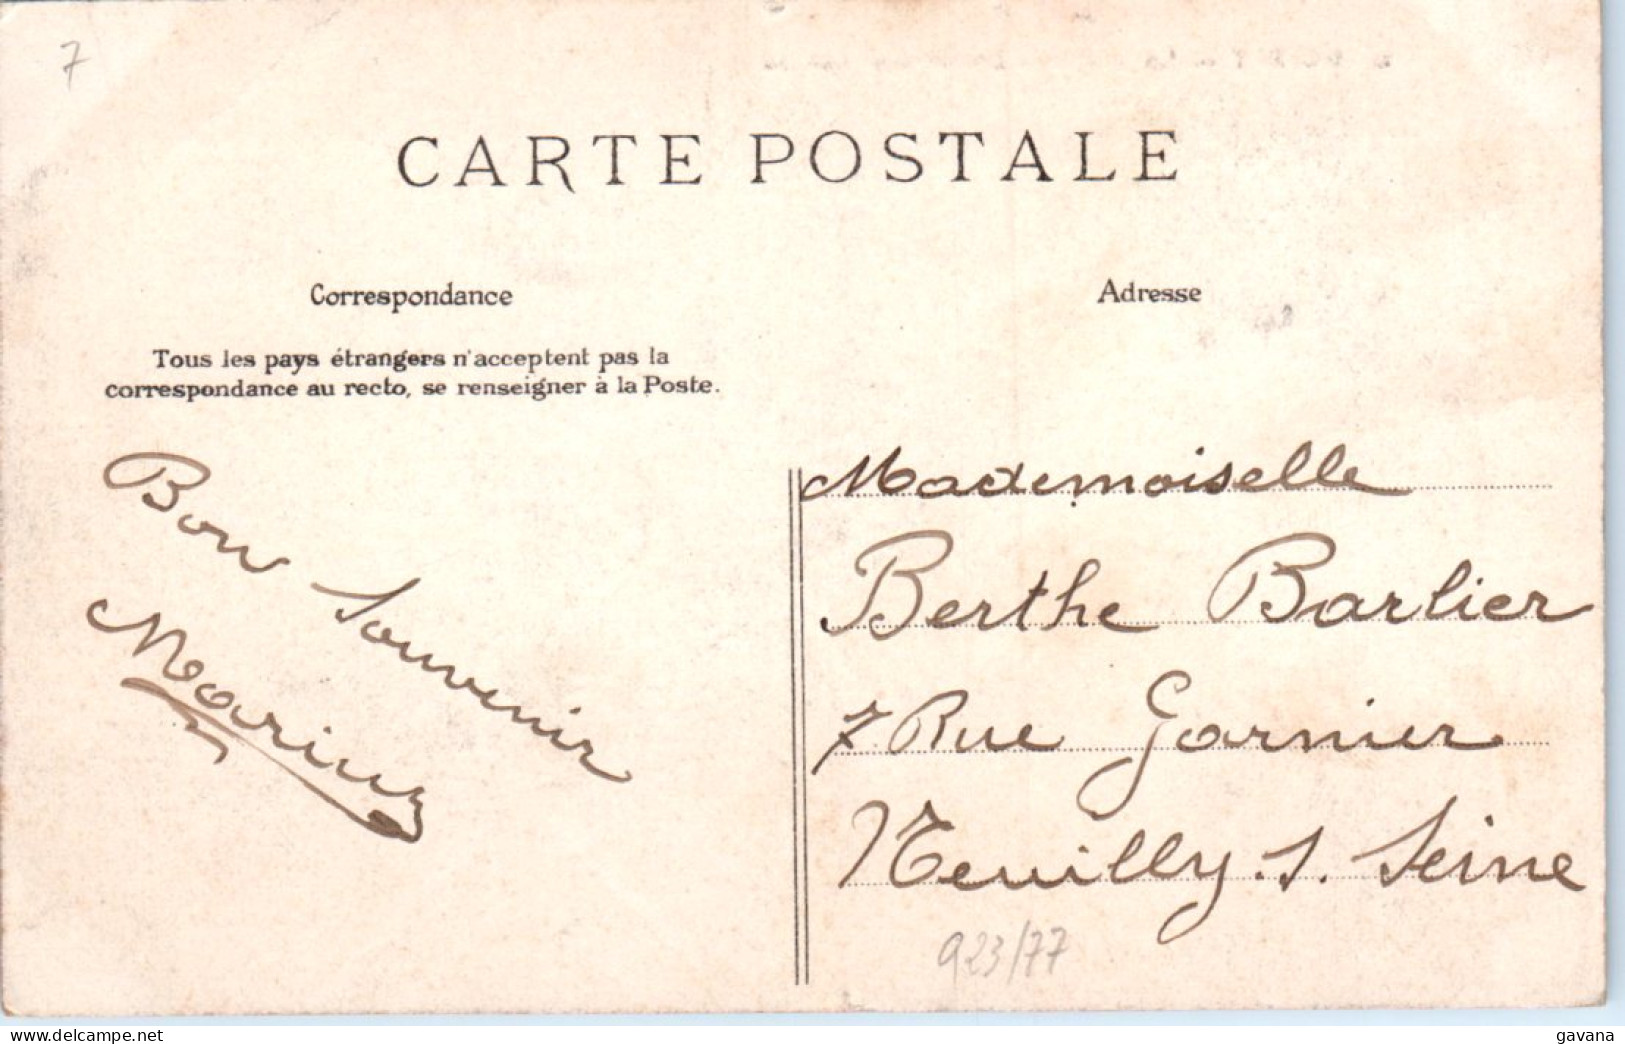 7
CARTE POSTALE
Correspondance
Tous les pays étrangers n'acceptent pas la
correspondance au recto, se renseigner à la Poste.
Bon Souvenir
Marius
Adresse
Mademoiselle
Berthe Barlier
7 Rue Garnier
Neuilly. s. Seine
923/77
delcampe.net
gavana